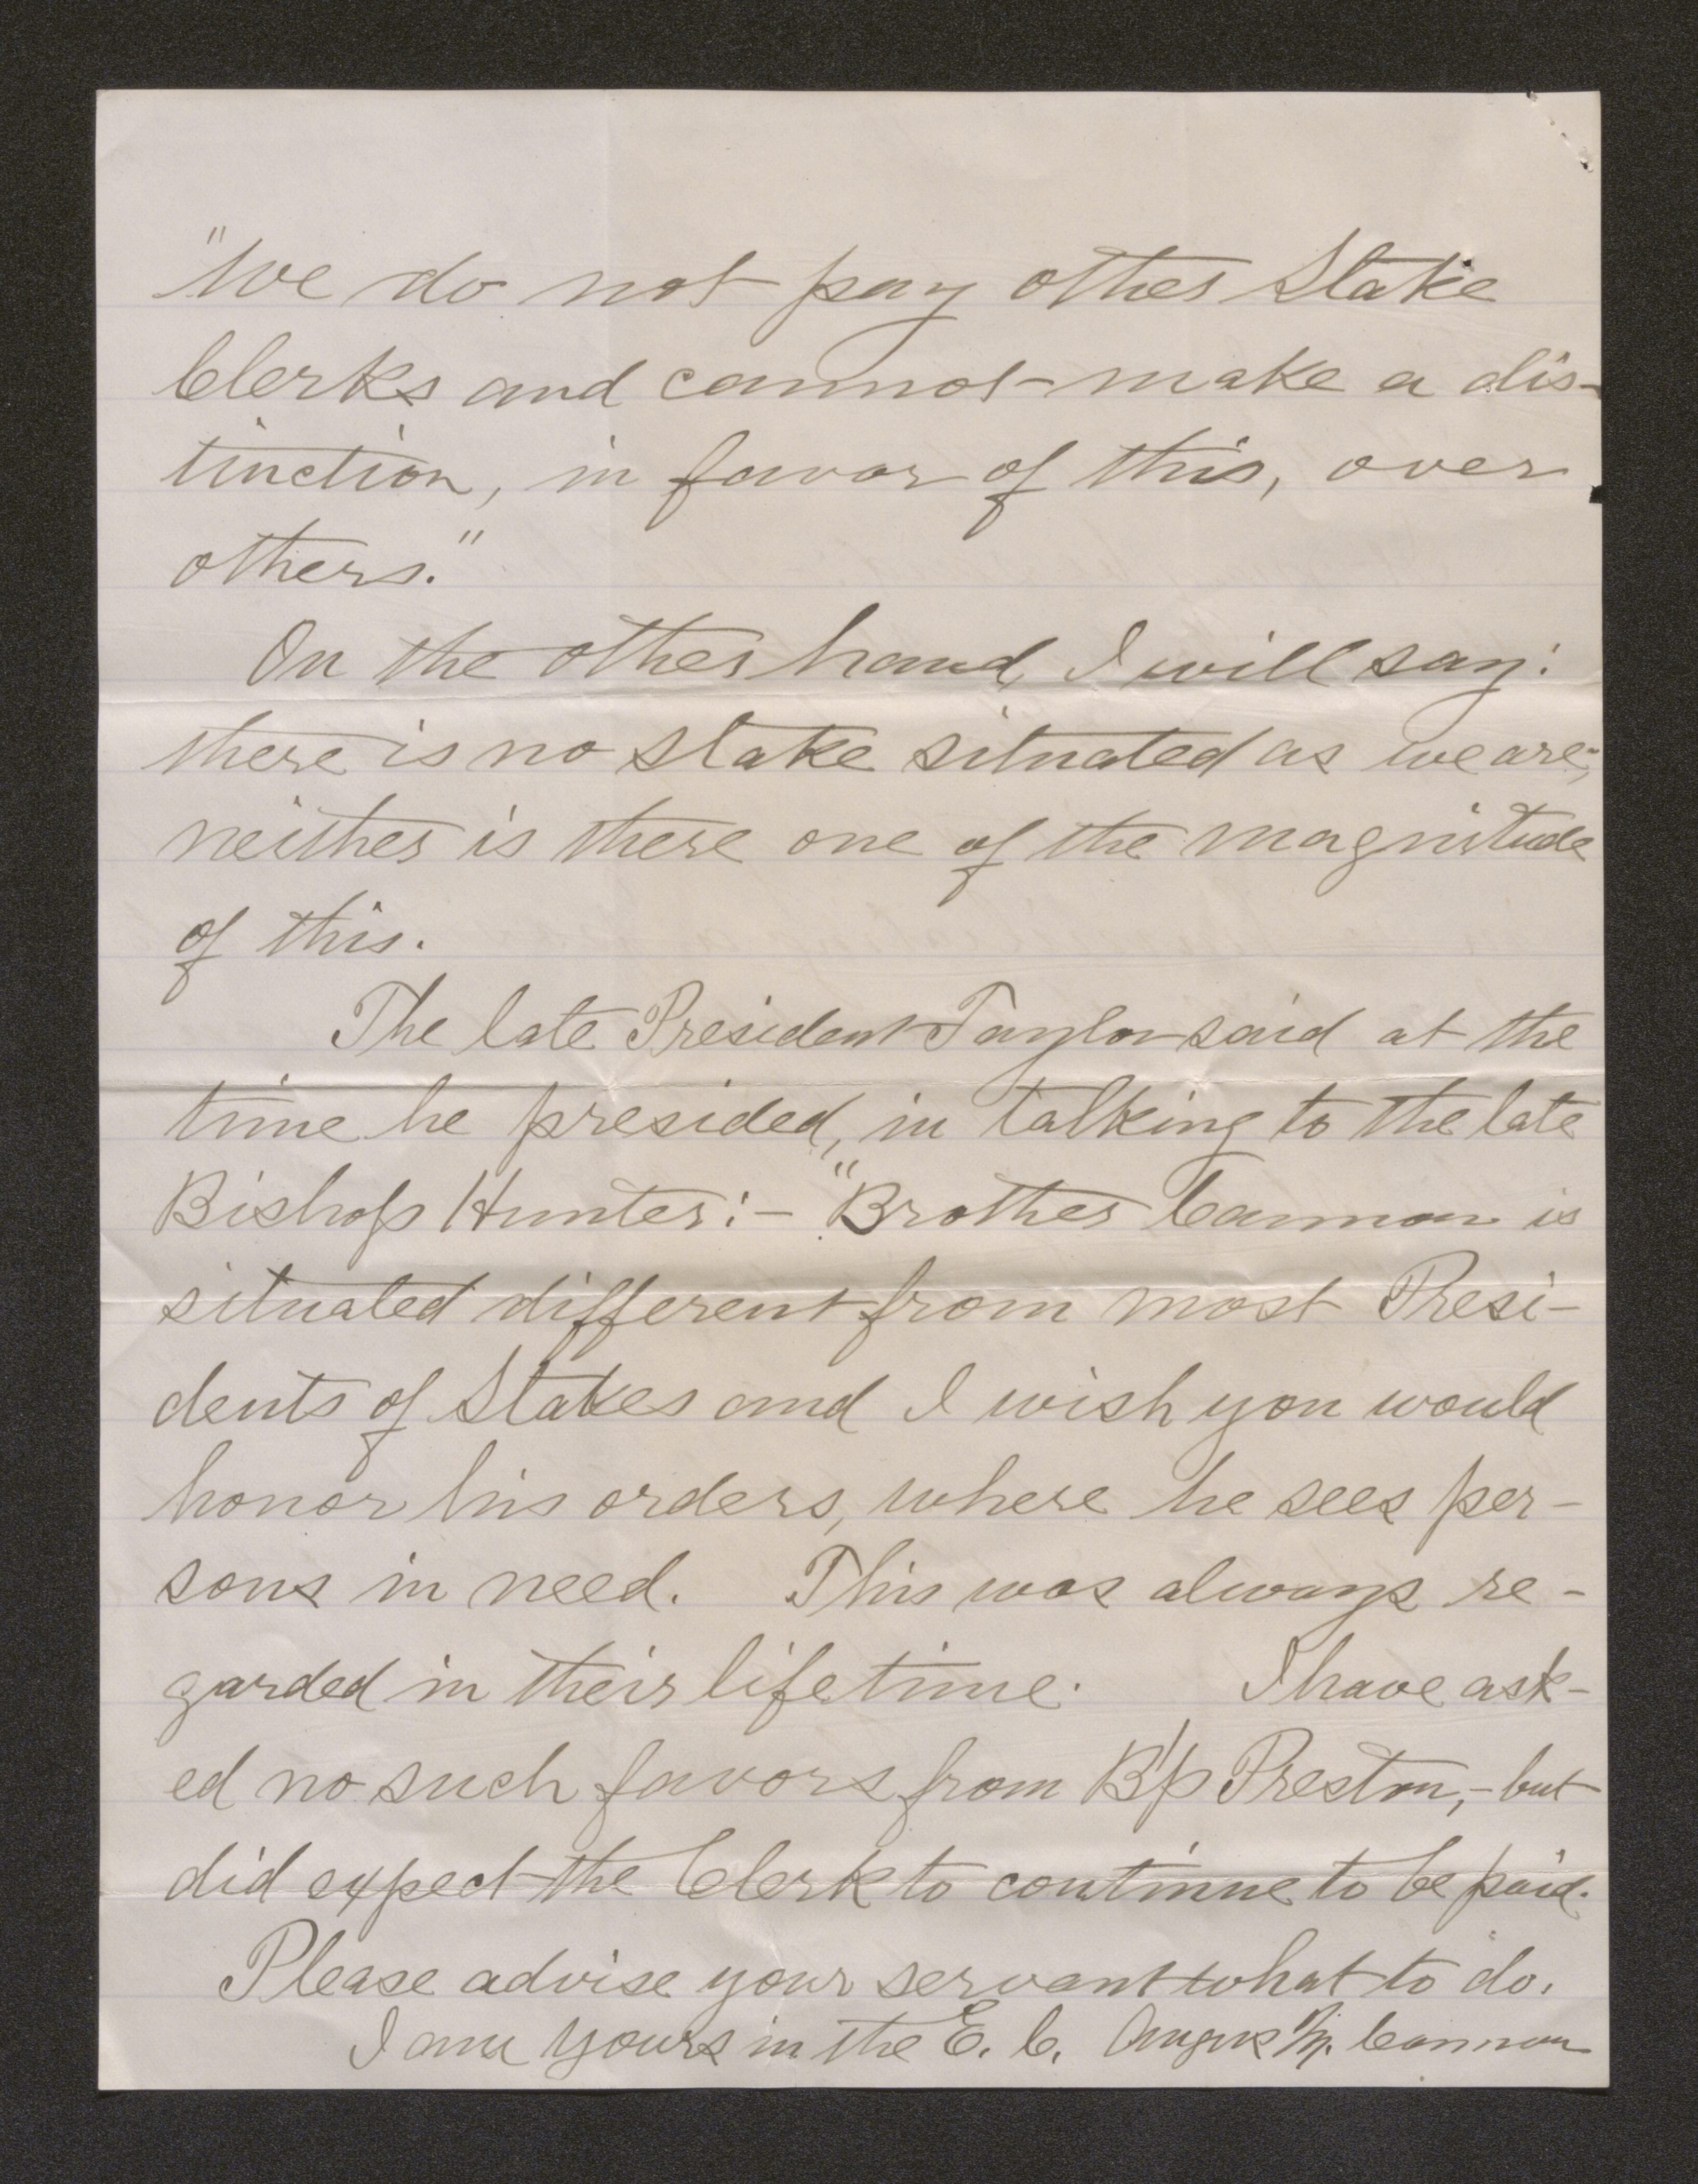 "We do not pay other Stake
Clerks and cannot make a dis-
tinction, in favor of this, over
others."
On the other hand, I will say:
there is no stake situated as we are;
neither is there one of the magnitude
of this.
The late President Taylor said at the
time he presided, in talking to the late
Bishop Hunter:- "Brother Cannon is
situated different from most Presi-
dents of Stakes and I wish you would
honor his orders, where he sees per-
sons in need. This was always re-
garded in their lifetime. I have ask-
ed no such favors from B'p Preston,- but
did expect the Clerk to continue to be paid.
Please advise your servant what to do.
I am yours in the E. C. Angus M. Cannon